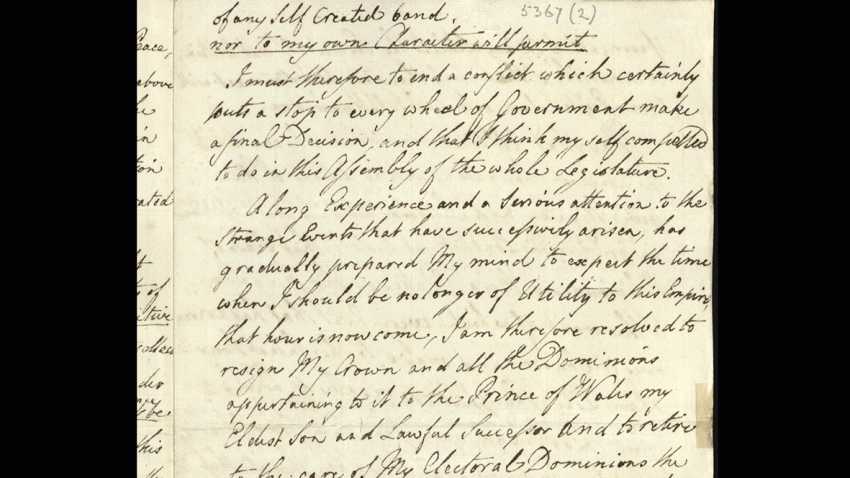 of any self created band, 5367 (2)
nor to my own Character will permit
I must therefore to end a conflict which certainly
puts a stop to every wheel of Government make
a final Decision, and that I think myself compelled
to do in this Assembly of the whole Legislature.
A long Experience and a serious attention to the
Strange Events that have successively arisen, has
gradually prepared My mind to expect the time
when I should be no longer of Utility to this Empire,
that hour is now come, I am therefore resolved to
resign My Crown and all the Dominions
appertaining to it to the Prince of Wales my
Eldest Son and Lawful Successor and to retire
to the care of My Electoral Dominions the
Peace,
above
he
in
tion
rated
of
ative
der
be
this
the